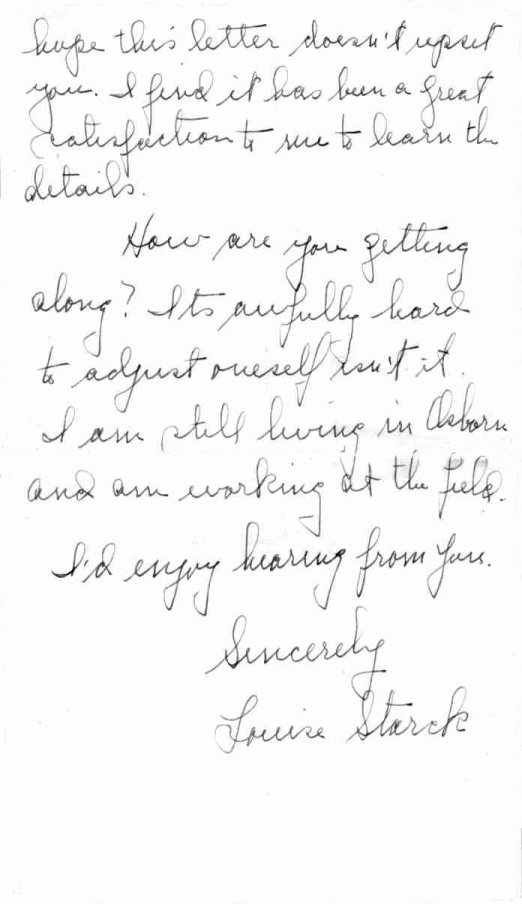 hope this letter doesn't upset
you. I find it has been a great
satisfaction to me to learn the
details.
How are you getting
along? Its awfully hard
to adjust oneself isn't it.
I am still living in Osborn
and am working at the field.
I'd enjoy hearing from you.
Sincerely
Louise Starck